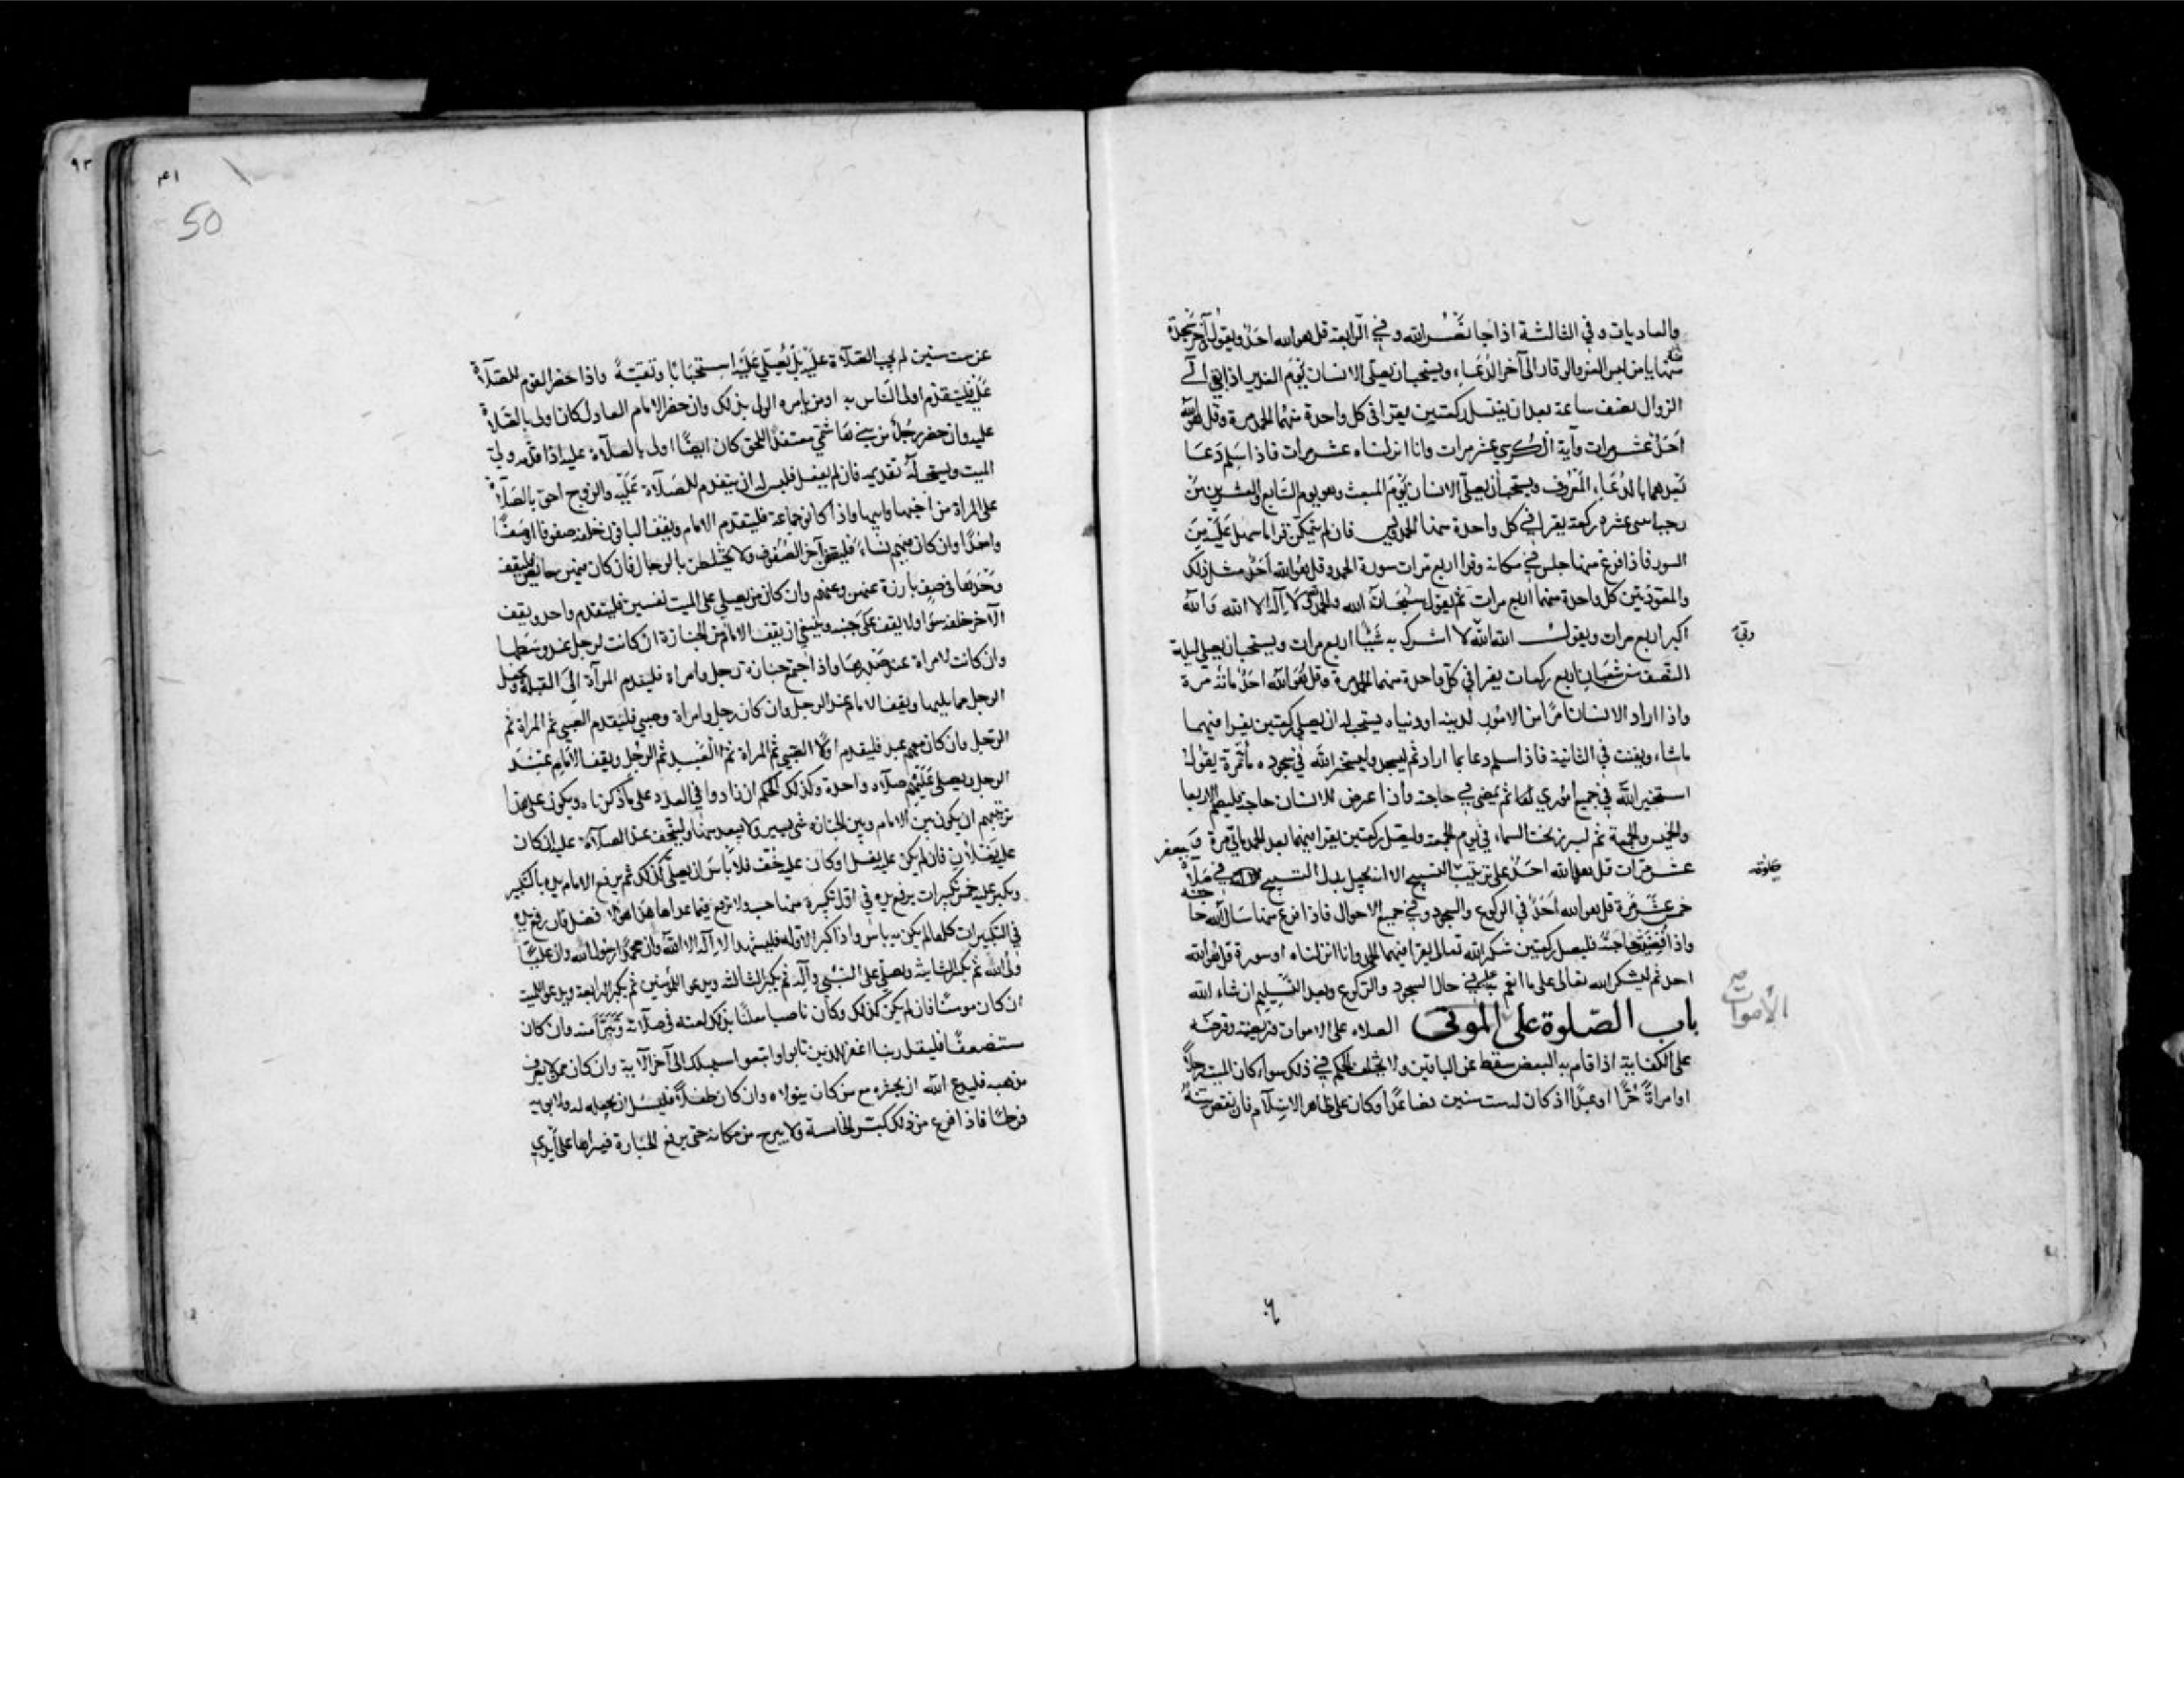 والعاديات وفي الثالثة اذا جا نصر الله وفي الرابعة قل هو الله احد ويقول في آخر سجدة
منها يا من لبس العز والوقار الى آخر الدعاء ويستحب ان يصلي الانسان يوم الغدير اذا بقي الى
الزوال نصف ساعة بعد ان يغتسل ركعتين يقرا في كل واحدة منهما الحمد مرة وقل هو الله
احد عشر مرات وآية الكرسي عشر مرات وانا انزلناه عشر مرات فاذا سلم دعا
بعدهما بالدعاء المعروف ويستحب ان يصلي الانسان يوم المبعث وهو يوم السابع والعشرين من
رجب اثنى عشره ركعة يقرا في كل واحدة منها الحمد ويس فان لم يتمكن قرا ما سهل عليه من
السور فاذا فرغ منها جلس في مكانه وقرا اربع مرات سورة الحمد وقل هو الله احد مثل ذلك
والمعوذتين كل واحدة منهما اربع مرات ثم يقول سبحان الله والحمد لله ولا اله الا الله والله
اكبر اربع مرات ويقول الله الله لا اشرك به شيئا اربع مرات ويستحب ان يصلي ليلة
النصف من شعبان اربع ركعات يقرا في كل واحدة منهما الحمد مرة وقل هو الله احد مائة مرة
واذا اراد الانسان امرا من الامور لدينه او دنياه يستحب له ان يصلي ركعتين يقرا فيهما
ما شاء ويقنت في الثانية فاذا سلم دعا بما اراد ثم ليسجد وليستخر الله في سجوده مائة مرة يقول
استخير الله في جميع اموري ثم يمضي في حاجته واذا عرض للانسان حاجة فليصم الاربعا
والخميس والجمعة ثم ليبرز تحت السماء في يوم الجمعة وليصل ركعتين يقرا فيهما بعد الحمد مائتي مرة و
عشر مرات قل هو الله احد على ترتيب التسبيح الا انه يجعل بدل التسبيح في صلاة جعفر
خمس عشرة مرة قل هو الله احد في الركوع والسجود وفي جميع الاحوال فاذا فرغ منها سال الله حاجته
واذا قضيت حاجته فليصل ركعتين شكرا لله تعالى يقرا فيهما الحمد وانا انزلناه او سورة قل هو الله
احد ثم ليشكر الله تعالى على ما انعم عليه في حال السجود والركوع وبعد التسليم ان شاء الله
باب الصلوة على الموتى الصلاة على الاموات فريضة وفرضه
الأموات
على الكفاية اذا قام به البعض سقط عن الباقين ولا يختلف الحكم في ذلك سواء كان الميت رجلا
او امراة حرا او عبدا اذ كان له ست سنين فصاعدا وكان على ظاهر الاسلام فان نقص سنه
٤١
50
٩٣
عن ست سنين لم يجب الصلاة عليه بل يصلي عليه استحبابا وتقية واذا حضر القوم للصلاة
عليه فليتقدم اولى الناس به او من يامره الولي بذلك وان حضر الامام العادل كان اولى بالصلاة
عليه وان حضر رجل من بني هاشم معتقدا للحق كان ايضا اولى بالصلاة عليه اذا قدمه ولي
الميت ويستحب له تقديمه فان لم يفعل فليس له ان يتقدم للصلاة عليه والزوج احق بالصلاة
على المراة من اخيها وابيها واذا كانوا جماعة فليتقدم الامام ويقف الباقون خلفه صفوفا او صفا
واحدا وان كان فيهم نساء فليقفن آخر الصفوف ولا يختلطن بالرجال فان كان فيهن حائض فليقف
وحدها في صف بارزة عنهن وعنهم وان كان من يصلي على الميت نفسين فليتقدم واحد ويقف
الآخر خلفه سواء ولا يقف على جنبه وينبغي ان يقف الامام من الجنازة ان كانت لرجل عند وسطها
وان كانت لامراة عند صدرها واذا اجتمع جنازة رجل وامراة فليقدم المرآة الى القبلة ويجعل
الرجل مما يليها ويقف الامام عند الرجل وان كان رجل وامراة وصبي فليقدم الصبي ثم المراة ثم
الرجل وان كان معهم عبد فليقدم اولا الصبي ثم المراة ثم العبد ثم الرجل ويقف الامام عند
الرجل ويصلي عليهم صلاة واحدة وكذلك الحكم ان زادوا في العدد على ما ذكرناه ويكون على هذا
ترتيبهم ان يكون بين الامام وبين الجنازه شي يسير ولا يبعد منها وليتحف عند الصلاة عليه ان كان
عليه نعلان فان لم يكن عليه نعل او كان عليه خف فلا باس ان يصلي كذلك ثم يرفع الامام يده بالتكبير
ويكبر عليه خمس تكبيرات يرفع يده في اول تكبيرة منها حسب ولا يرفع فيما عداها هذا هو الافضل فان رفع يده
في التكبيرات كلها لم يكن به باس واذا كبر الاولة فليشهد ان لا اله الا الله وان محمدا رسول الله وان عليا
ولي الله ثم يكبر الثانية ويصلي على النبي وآله ثم يكبر الثالثة ويدعو للمؤمنين ثم يكبر الرابعة ويدعو للميت
ان كان مومنا فان لم يكن كذلك وكان ناصبا معلنا بذلك لعنه في صلاته وتبرأ منه وان كان
مستضعفا فليقل ربنا اغفر للذين تابوا واتبعوا سبيلك الى آخر الآية وان كان ممن لا يعرف
مذهبه فليدع الله ان يحشره مع من كان يتولاه وان كان طفلا فليسئل ان يجعله له ولابويه
فرطا فاذا فرغ من ذلك كبر الخامسة ولا يبرح من مكانه حتى يرفع الجنازة فيراها على ايدي